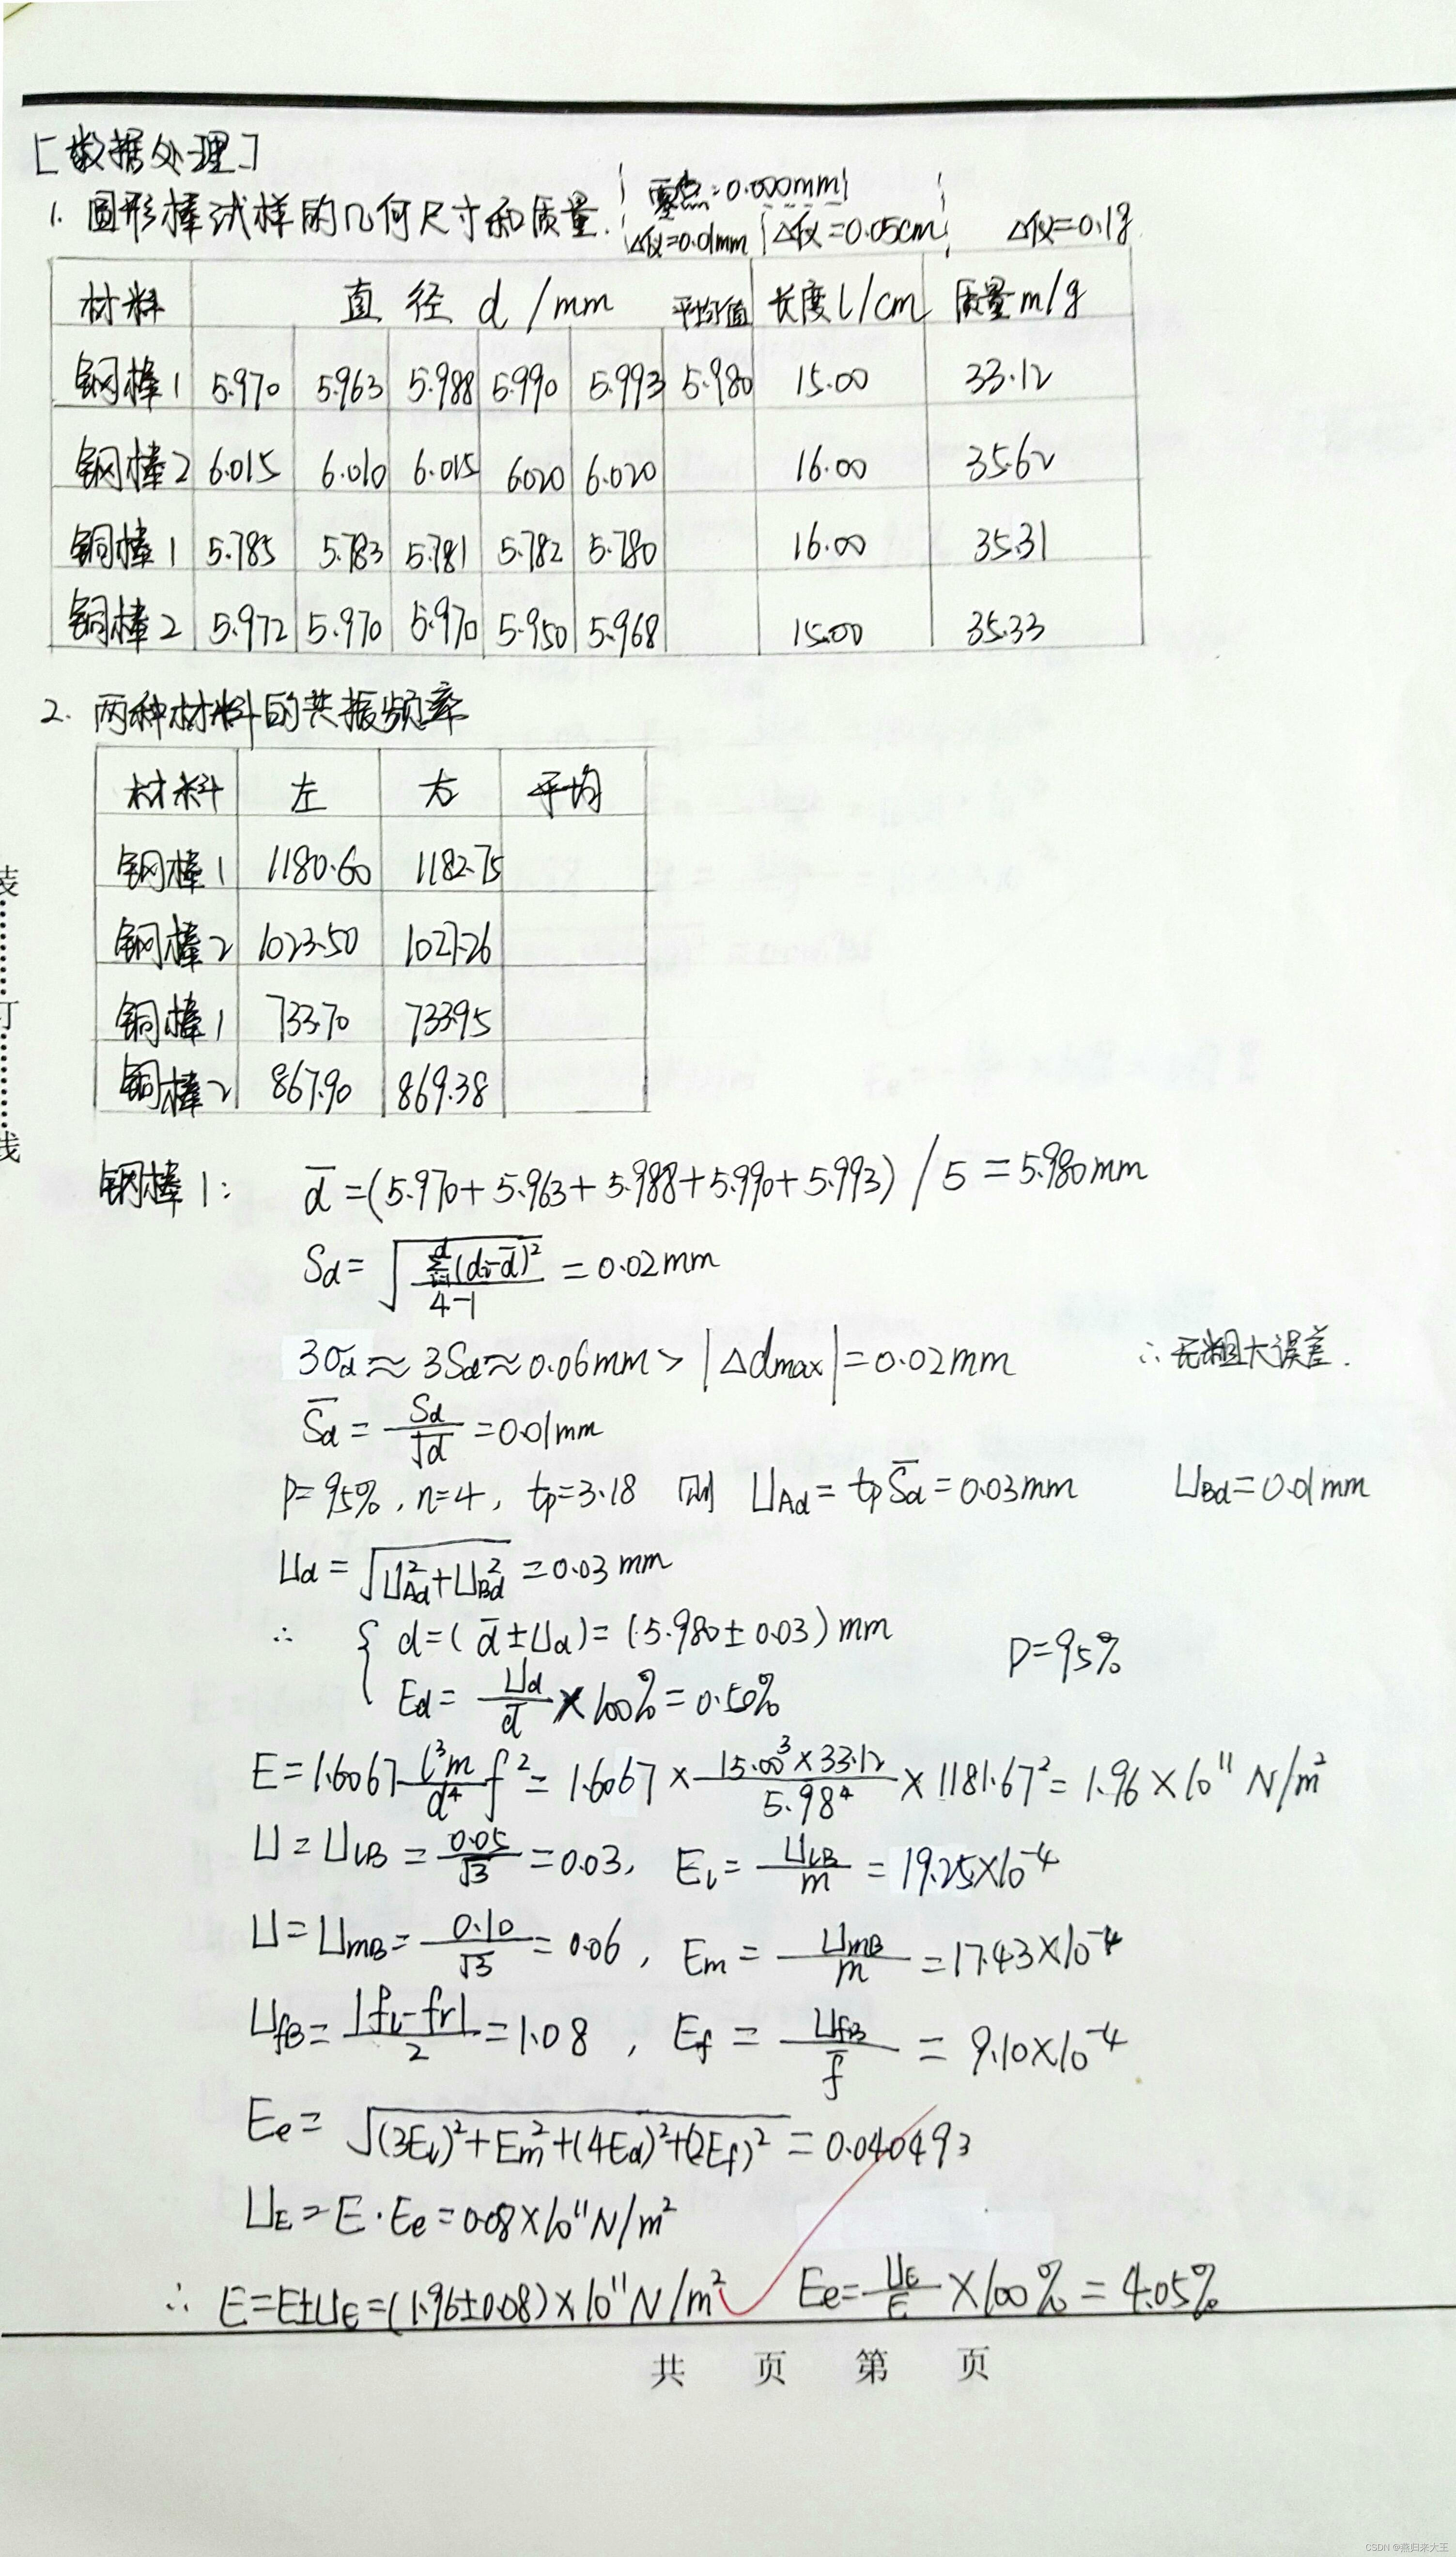 [数据处理]
零点:0.000mm
1. 圆形棒试样的几何尺寸和质量. Δ仪=0.01mm Δ仪=0.05cm Δ仪=0.1g
材料 直径 d /mm 平均值 长度l/cm 质量m/g
钢棒1 5.970 5.963 5.988 5.990 5.993 5.980 15.00 33.12
钢棒2 6.015 6.010 6.015 6.020 6.020 16.00 35.62
铜棒1 5.785 5.783 5.781 5.782 5.780 16.00 35.31
铜棒2 5.972 5.970 5.970 5.950 5.968 15.00 35.33
2. 两种材料的共振频率
材料 左 右 平均
钢棒1 1180.60 1182.75
钢棒2 1023.50 1027.26
铜棒1 733.70 733.95
铜棒2 867.90 869.38
装
订
线
钢棒1: d̄=(5.970+5.963+5.988+5.990+5.993)/5=5.980mm
Sd=√(Σ(di-d̄)²/(4-1))=0.02mm
3σd≈3Sd≈0.06mm>|Δdmax|=0.02mm ∴无粗大误差.
S̄d=Sd/√d=0.01mm
P=95%, n=4, tp=3.18 则 UAd=tpS̄d=0.03mm UBd=0.01mm
Ud=√(UAd²+UBd²)=0.03mm
∴ { d=(d̄±Ud)=(5.980±0.03)mm
Ed=Ud/d̄×100%=0.50% P=95%
E=1.6067 l³m/d⁴ f²=1.6067×15.00³×33.12/5.98⁴×1181.67²=1.96×10¹¹N/m²
U=UlB=0.05/√3=0.03, El=UlB/m=19.25×10⁻⁴
U=UmB=0.10/√3=0.06, Em=UmB/m=17.43×10⁻⁴
UfB=|fl-fr|/2=1.08, Ef=UfB/f̄=9.10×10⁻⁴
Ee=√((3El)²+Em²+(4Ed)²+(2Ef)²)=0.040493
UE=E·Ee=0.08×10¹¹N/m²
∴ E=E±UE=(1.96±0.08)×10¹¹N/m² Ee=UE/E×100%=4.05%
共 页 第 页
CSDN @燕归来大王